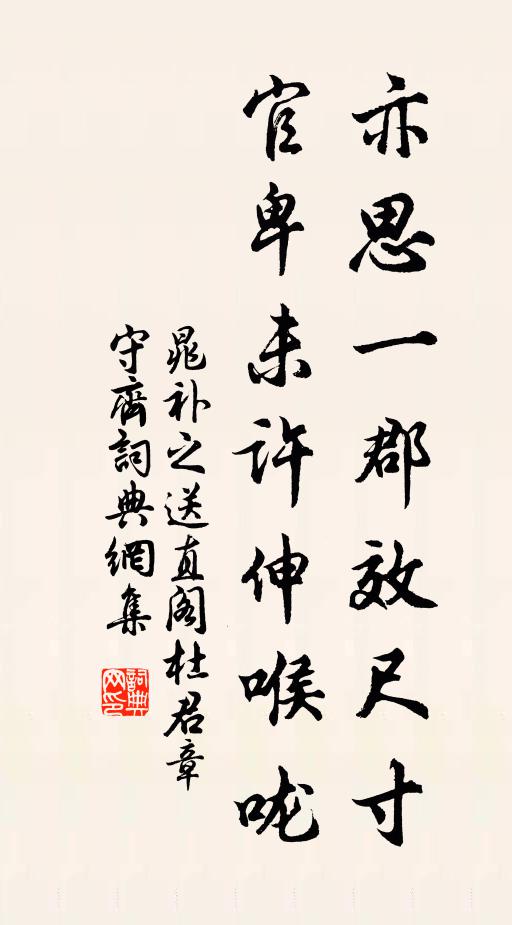 亦思一郡效尺寸
官卑未許伸喉咙
晁补之送直阁杜君章
守齊詞典網集
詞典网印